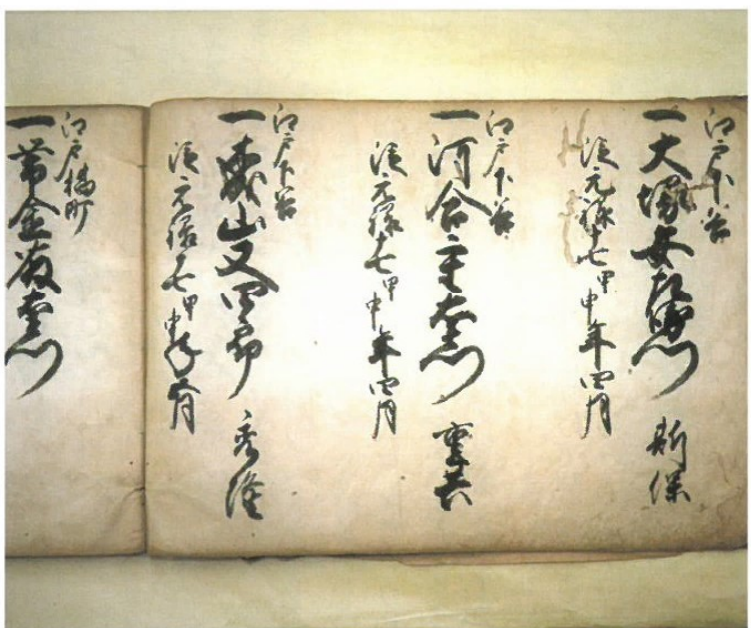 江戸下谷
一大塚安左衛門 新保
従元禄十七甲申年四月
江戸下谷
一河合才左衛門 重共
従元禄十七甲申年四月
江戸下谷
一山又四郎 秀隆
従元禄十七甲申年五月
江戸橘町
一帯金藤左衛門